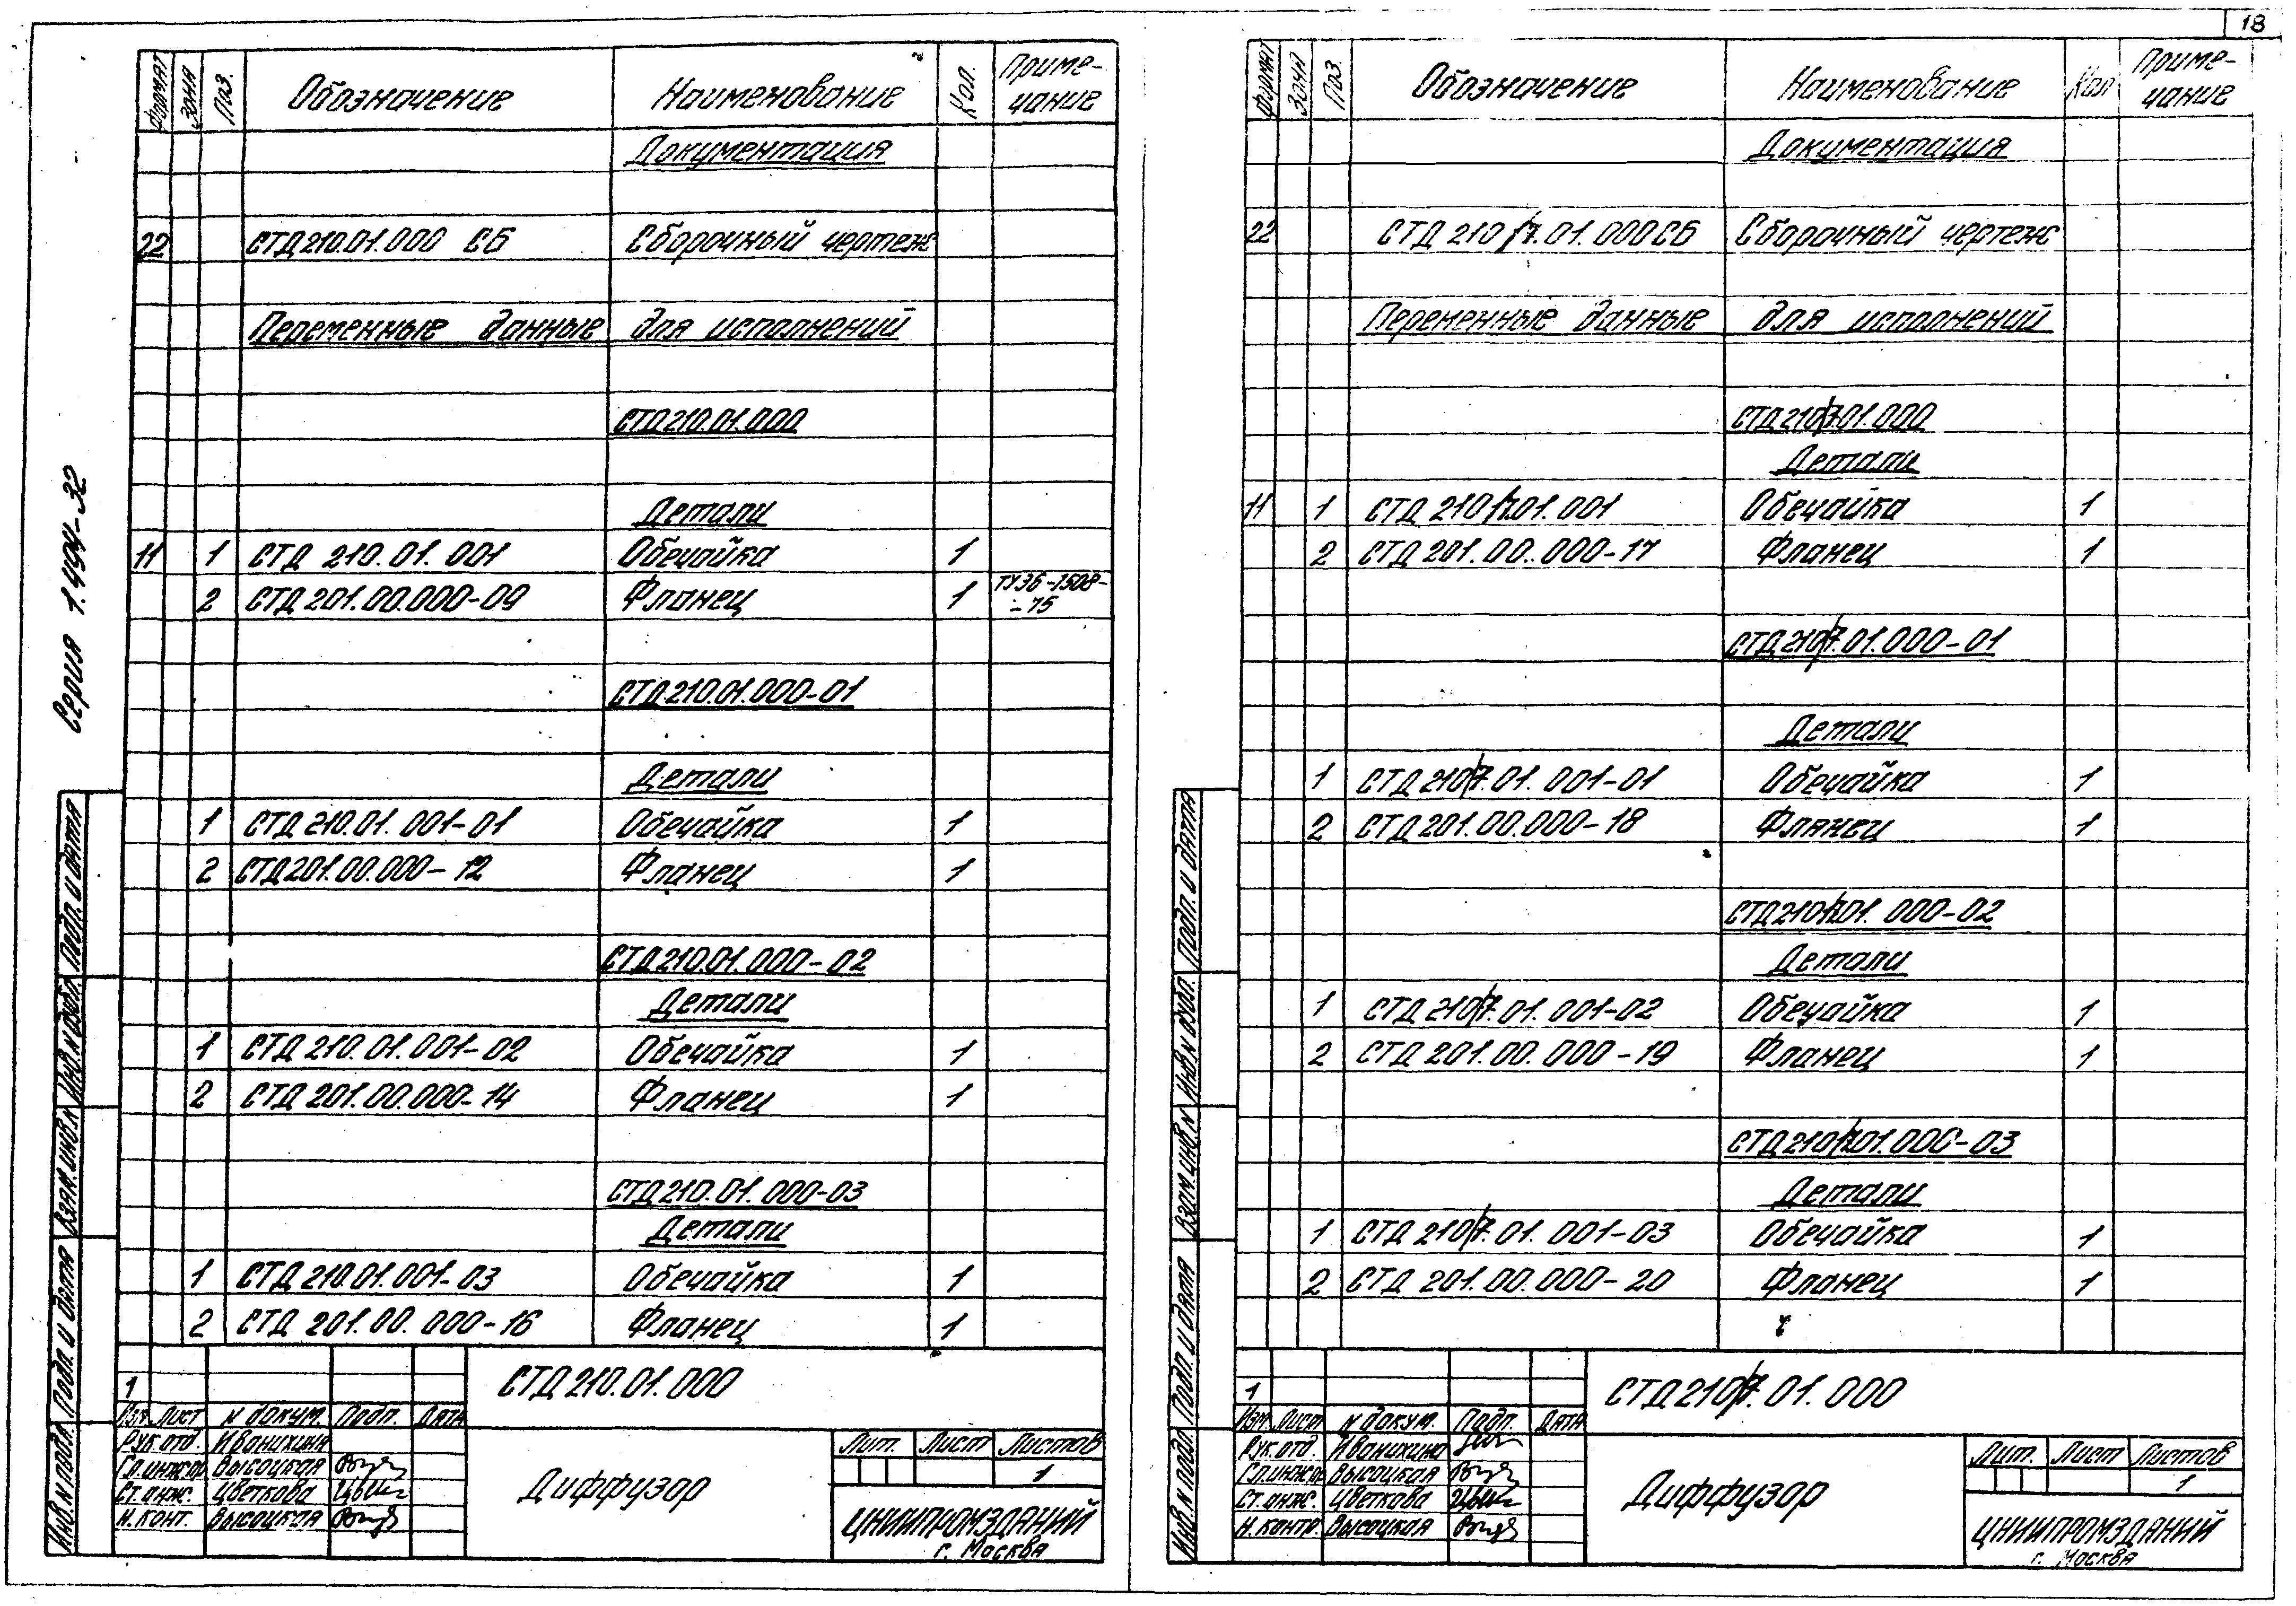 18
Серия 1.494-32
Формат Зона Поз. Обозначение Наименование Кол. Приме-
чание
Документация
22 СТД210.01.000 СБ Сборочный чертеж
Переменные данные для исполнений
СТД210.01.000
Детали
11 1 СТД 210.01.001 Обечайка 1
2 СТД201.00.000-09 Фланец 1 ТУ36-1508-
-75
СТД210.01.000-01
Детали
1 СТД 210.01.001-01 Обечайка 1
2 СТД201.00.000-12 Фланец 1
СТД210.01.000-02
Детали
1 СТД 210.01.001-02 Обечайка 1
2 СТД 201.00.000-14 Фланец 1
СТД210.01.000-03
Детали
1 СТД 210.01.001-03 Обечайка 1
2 СТД 201.00.000-16 Фланец 1
Инв.N подл. Подп. и дата Взам.инв.N Инв.N дубл. Подп. и дата
1
Изм Лист N докум. Подп. Дата
Рук.отд. Иванихина
Гл.инж.пр Высоцкая
Ст.инж. Цветкова
Н.конт. Высоцкая
СТД210.01.000
Диффузор
Лит. Лист Листов
1
ЦНИИПРОМЗДАНИЙ
г. Москва
Формат Зона Поз. Обозначение Наименование Кол Приме-
чание
Документация
22 СТД 210/7.01.000СБ Сборочный чертеж
Переменные данные для исполнений
СТД210/7.01.000
Детали
11 1 СТД 210/7.01.001 Обечайка 1
2 СТД 201.00.000-17 Фланец 1
СТД210/7.01.000-01
Детали
1 СТД 210/7.01.001-01 Обечайка 1
2 СТД 201.00.000-18 Фланец 1
СТД210/7.01.000-02
Детали
1 СТД 210/7.01.001-02 Обечайка 1
2 СТД 201.00.000-19 Фланец 1
СТД210/7.01.000-03
Детали
1 СТД 210/7.01.001-03 Обечайка 1
2 СТД 201.00.000-20 Фланец 1
Инв.N подл. Подп. и дата Взам.инв.N Инв.N дубл. Подп. и дата
1
Изм. Лист N докум. Подп. Дата
Рук.отд. Иванихина
Гл.инж.пр Высоцкая
Ст.инж. Цветкова
Н.контр. Высоцкая
СТД210/7.01.000
Диффузор
Лит. Лист Листов
1
ЦНИИПРОМЗДАНИЙ
г. Москва